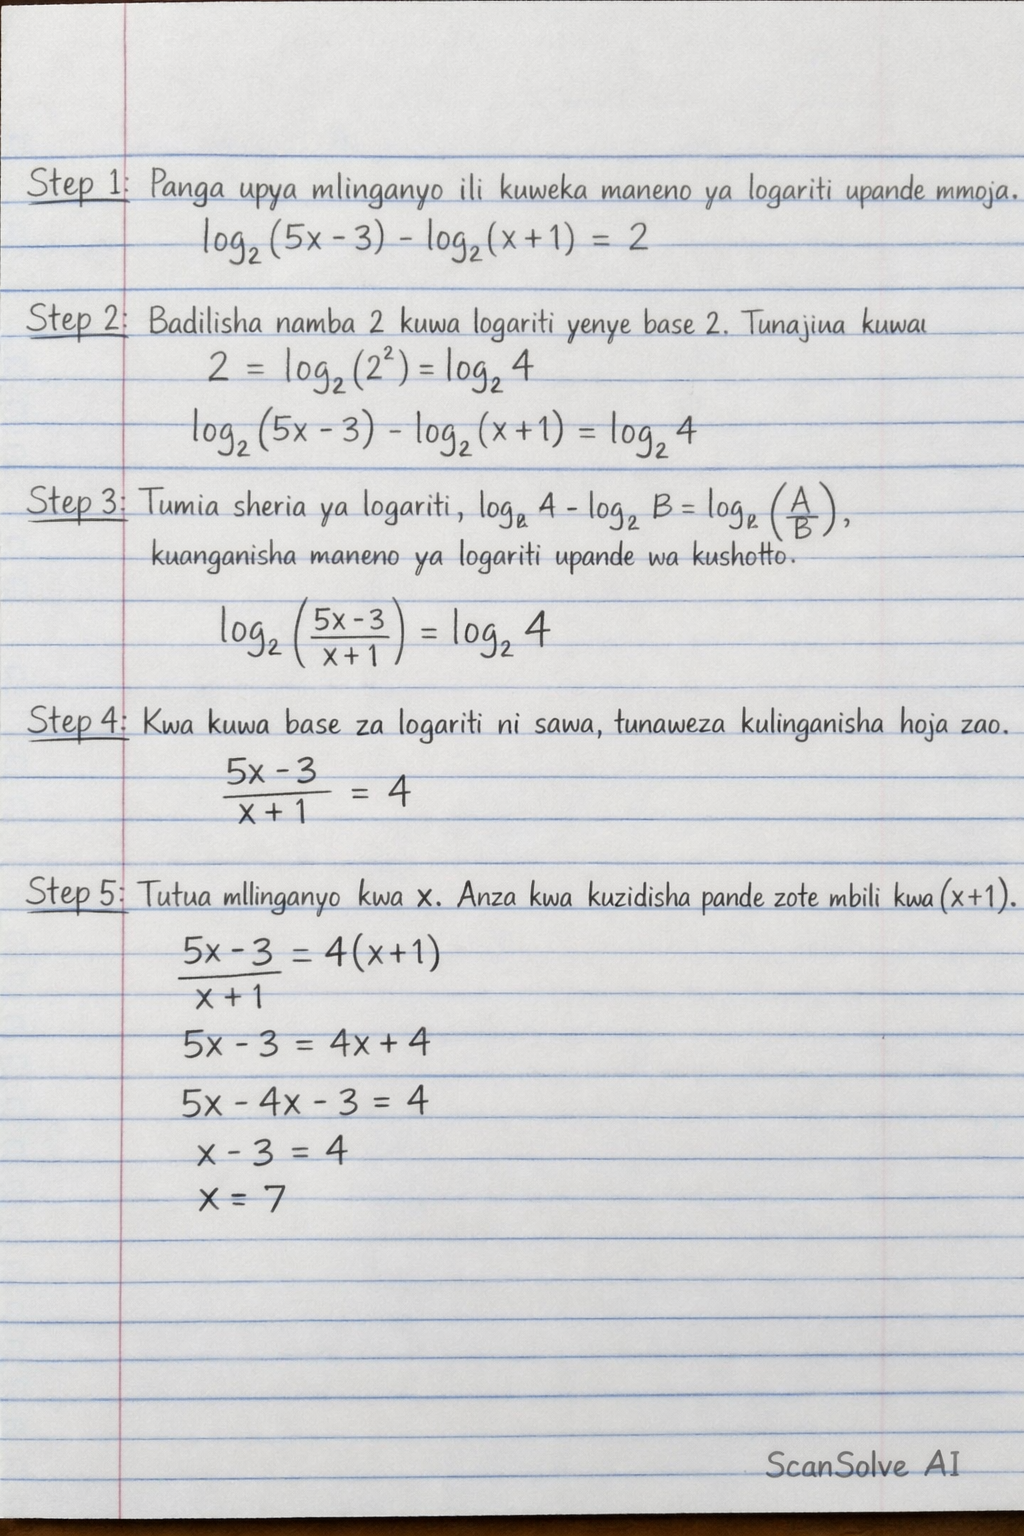 Step 1: Panga upya mlinganyo ili kuweka maneno ya logariti upande mmoja.
log₂(5x - 3) - log₂(x + 1) = 2
Step 2: Badilisha namba 2 kuwa logariti yenye base 2. Tunajiua kuwaι
2 = log₂(2²) = log₂ 4
log₂(5x - 3) - log₂(x + 1) = log₂ 4
Step 3: Tumia sheria ya logariti, log₂ 4 - log₂ B = log₂ (A/B),
kuanganisha maneno ya logariti upande wa kushotto.
log₂ ((5x - 3)/(x + 1)) = log₂ 4
Step 4: Kwa kuwa base za logariti ni sawa, tunaweza kulinganisha hoja zao.
(5x - 3)/(x + 1) = 4
Step 5: Tutua mllinganyo kwa x. Anza kwa kuzidisha pande zote mbili kwa (x+1).
(5x - 3)/(x + 1) = 4(x+1)
5x - 3 = 4x + 4
5x - 4x - 3 = 4
x - 3 = 4
x = 7
ScanSolve AI